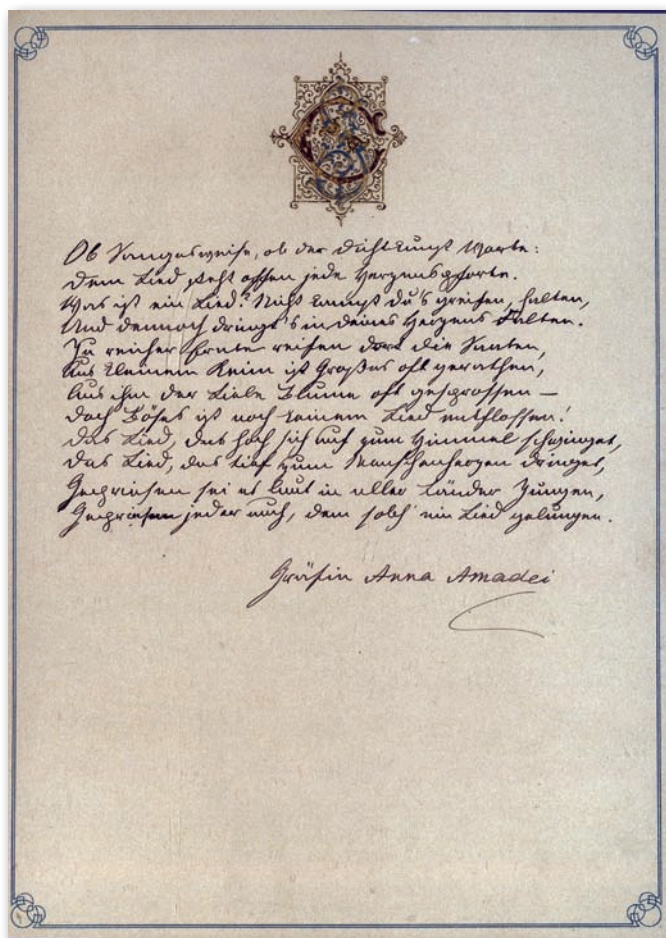 Ob Sangesweise, ob der Dichtkunst Worte:
Dem Lied steht offen jede Herzenspforte.
Was ist ein Lied? Nicht kannst du's greifen, halten,
Und dennoch dringt's in deines Herzens Falten.
Zu reicher Ernte reifen dort die Saaten,
Aus kleinem Keim ist Großes oft gerathen,
Aus ihm der Liebe Blume oft gesprossen —
Doch Böses ist noch keinem Lied entflossen!
Das Lied, das hoch sich auf zum Himmel schwinget,
Das Lied, das tief zum Menschenherzen dringet,
Gepriesen sei es laut in aller Länder Zungen,
Gepriesen jeder auch, dem solch' ein Lied gelungen.
Gräfin Anna Amadei